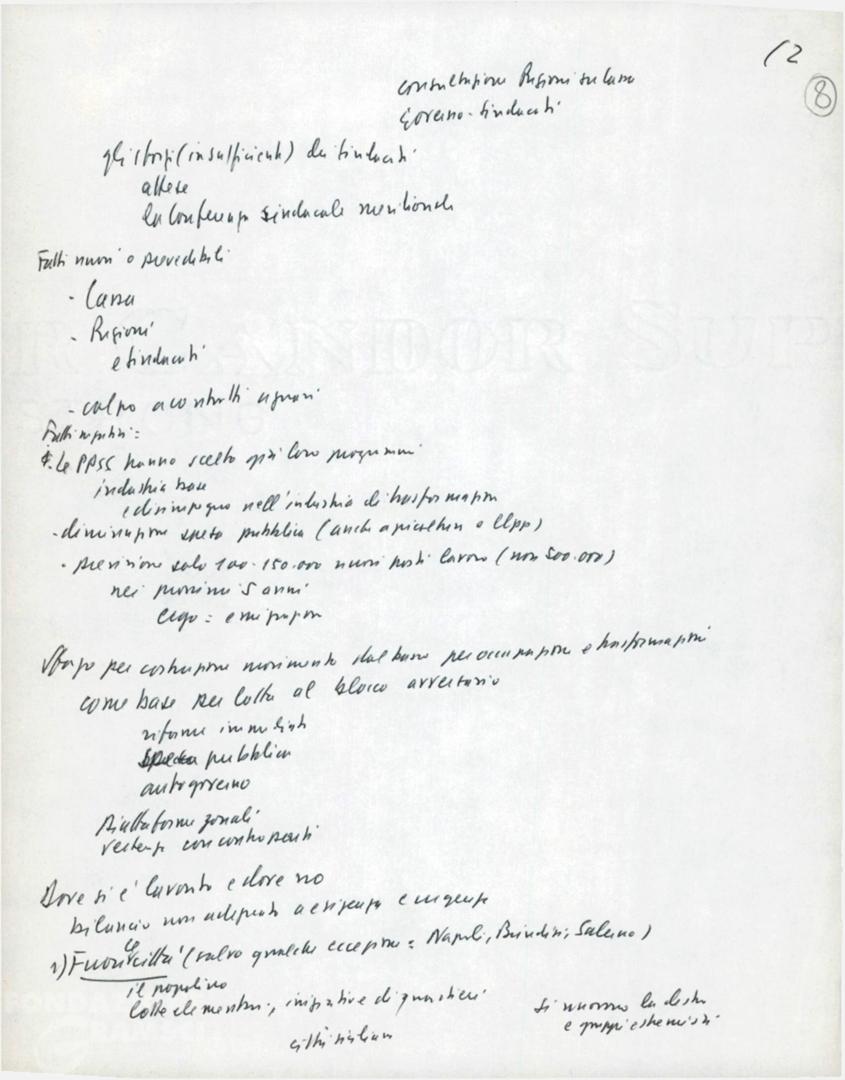 12
8
consultazione Regioni su Cassa
Governo-sindacati
gli sforzi (insufficienti) dei sindacati
attese
la Conferenza sindacale meridionale
Fatti nuovi o prevedibili
- Cassa
- Regioni
e sindacati
- colpo a contratti agrari
Fatti negativi:
- Le PPSS hanno scelto già loro programmi
industria base
e disimpegno nell'industria di trasformazione
- diminuzione spesa pubblica (anche agricoltura e LLpp)
- previsione solo 100-150.000 nuovi posti lavoro (non 500.000)
nei prossimi 5 anni
ergo: emigrazione
Sforzo per costruzione movimento dal basso per occupazione e trasformazioni
come base per lotta al blocco avversario
riforme immediate
spesa pubblica
autogoverno
Piattaforme zonali
vertenze con controparti
Dove si è lavorato e dove no
bilancio non adeguato a esigenza e urgenza
1) Fuori le città (salvo qualche eccezione: Napoli, Brindisi, Salerno)
il popolino
lotte elementari, iniziative di quartieri
città siciliane
si muovono la destra
e gruppi estremisti
FONDA